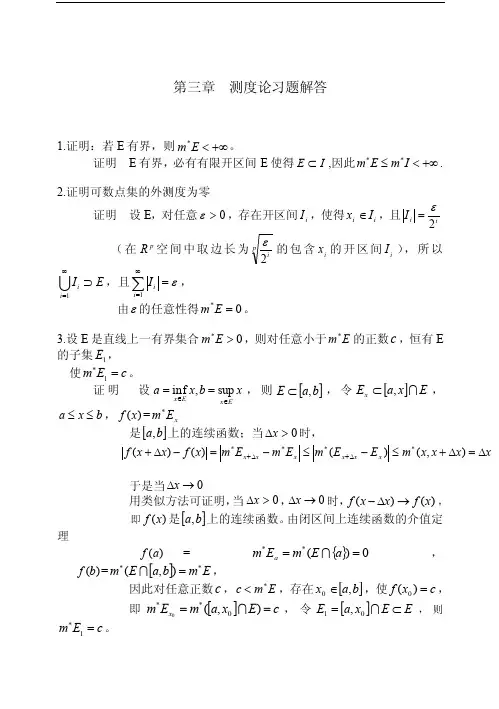 第三章 测度论习题解答
1.证明：若 E 有界，则 $m^*E<+\infty$。
证明 E 有界，必有有限开区间 E 使得 $E\subset I$ ,因此 $m^*E\le m^*I<+\infty$ .
2.证明可数点集的外测度为零
证明 设 E，对任意 $\varepsilon>0$，存在开区间 $I_i$，使得 $x_i\in I_i$，且 $|I_i|=\frac{\varepsilon}{2^i}$
（在 $R^p$ 空间中取边长为 $\sqrt[p]{\frac{\varepsilon}{2^i}}$ 的包含 $x_i$ 的开区间 $I_i$），所以
$\bigcup_{i=1}^{\infty}I_i\supset E$，且 $\sum_{i=1}^{\infty}|I_i|=\varepsilon$，
由 $\varepsilon$ 的任意性得 $m^*E=0$。
3.设 E 是直线上一有界集合 $m^*E>0$，则对任意小于 $m^*E$ 的正数 $c$，恒有 E
的子集 $E_1$，
使 $m^*E_1=c$。
证明 设 $a=\inf_{x\in E}x,b=\sup_{x\in E}x$，则 $E\subset[a,b]$，令 $E_x\subset[a,x]\bigcap E$，
$a\le x\le b$，$f(x)=m^*E_x$
是 $[a,b]$ 上的连续函数；当 $\Delta x>0$ 时，
$|f(x+\Delta x)-f(x)|=m^*E_{x+\Delta x}-m^*E_x\le m^*(E_{x+\Delta x}-E_x)\le m^*(x,x+\Delta x]=\Delta x$
于是当 $\Delta x\to 0$
用类似方法可证明，当 $\Delta x>0$，$\Delta x\to 0$ 时，$f(x-\Delta x)\to f(x)$，
即 $f(x)$ 是 $[a,b]$ 上的连续函数。由闭区间上连续函数的介值定
理
$f(a)$ = $m^*E_a=m^*(E\bigcap\{a\})=0$ ，
$f(b)=m^*(E\bigcap[a,b])=m^*E$，
因此对任意正数 $c$，$c<m^*E$，存在 $x_0\in[a,b]$，使 $f(x_0)=c$，
即 $m^*E_{x_0}=m^*([a,x_0]\bigcap E)=c$，令 $E_1=[a,x_0]\bigcap E\subset E$，则
$m^*E_1=c$。